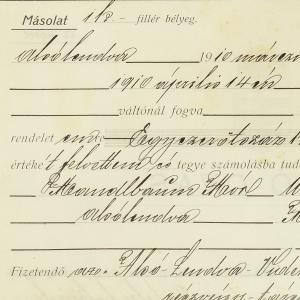 Másolat 1 k - fillér bélyeg.
Alsólendva 1910 márczi
1910 április 14 én
váltónál fogva
rendelet em Egyezerötszáz
értéke t felvettem és tegye számolásba tud
Mandelbaum Mór
alsólendva
Fizetendő az Alsó-Lendva-Vid